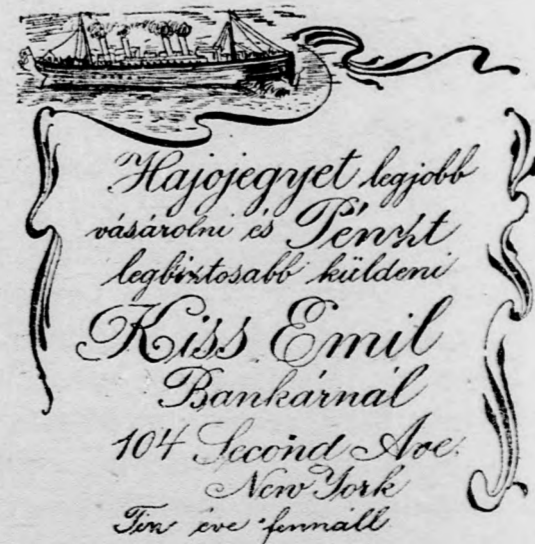 Hajojegyet legjobb
vásárolni és Pénzt
legbiztosabb küldeni
Kiss Emil
Bankárnál
104 Second Ave.
New York
Tiz éve fennáll